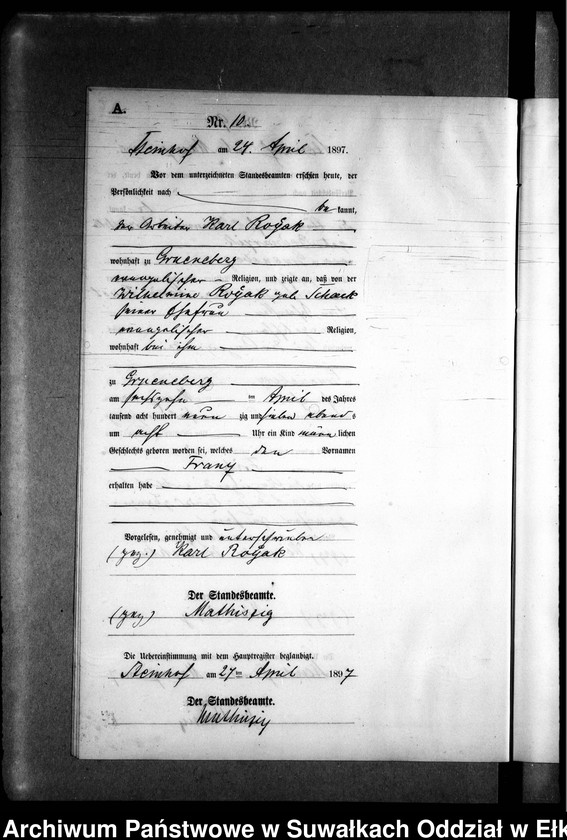 A.
Nr. 10.
Steinhof am 24. April 1897.
Vor dem unterzeichneten Standesbeamten erschien heute, der
Persönlichkeit nach
be kannt,
der Arbeiter Karl Rożak
wohnhaft zu Grueneberg
evangelischer Religion, und zeigte an, daß von der
Wilhelmine Rożak geb. Schack
seiner Ehefrau
evangelischer Religion,
wohnhaft bei ihm
zu Grueneberg
am sechszehn im April des Jahres
tausend acht hundert neun zig und sieben abends
um acht Uhr ein Kind männlichen
Geschlechts geboren worden sei, welches den Vornamen
Franz
erhalten habe
Vorgelesen, genehmigt und unterschrieben
(gez.) Karl Rożak
Der Standesbeamte.
(gez) Mathiszig
Die Uebereinstimmung mit dem Hauptregister beglaubigt.
Steinhof am 27ten April 1897
Der Standesbeamte.
Mathiszig
Archiwum Państwowe w Suwałkach Oddział w Ełk